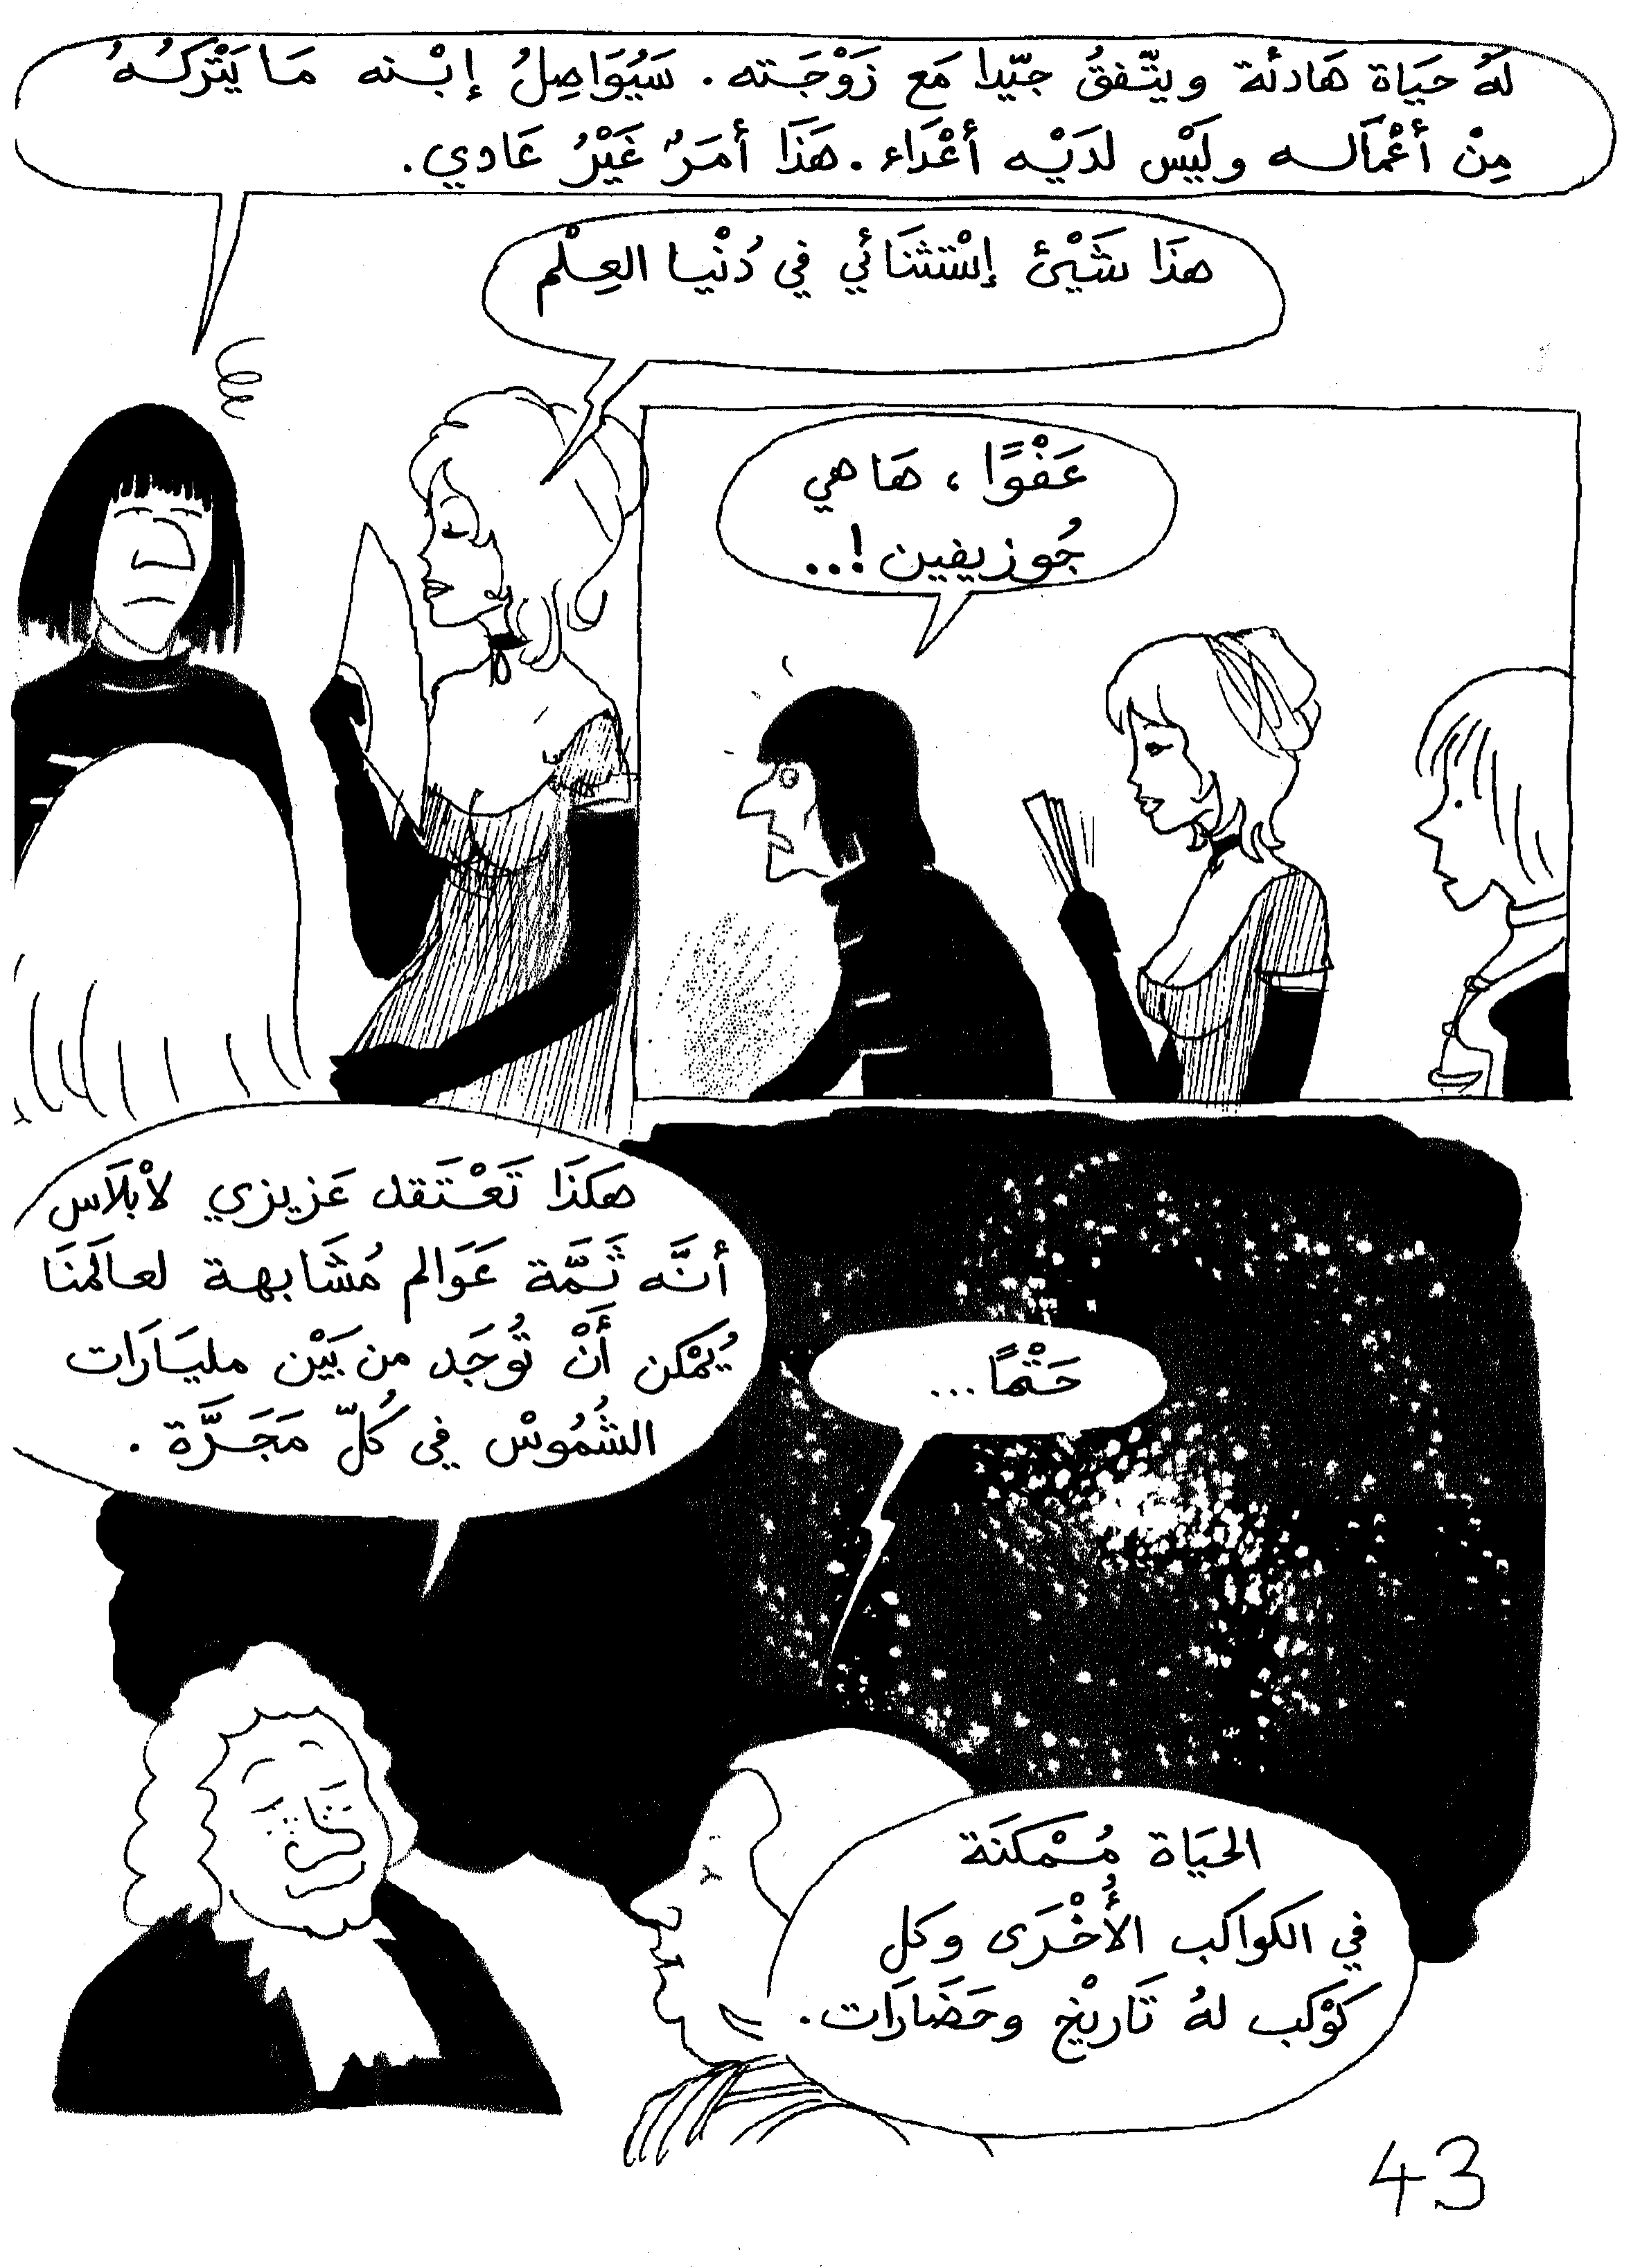 لَهُ حَيَاة هَادئة ويتّفقُ جيّدا مَع زَوْجَته. سَيُوَاصِلُ إبْنه مَا يَتْرُكُهُ
مِنْ أعْمَاله ولَيْس لدَيْه أعْدَاء. هَذَا أمَرٌ غَيْرُ عَادي.
هذَا شَيْئ إسْتثنَائي في دُنْيا العِلْم
عَفْوًا، هَاهي
جُوزيفين!..
هكذَا تَعْتَقد عَزيزي لاَبْلاَس
أنَّه ثَمَّة عَوَالم مُشَابهة لعالَمنَا
يُمْكن أَنْ تُوجَد من بَيْن مليَارَات
الشُمُوسْ في كُلّ مَجَرَّة.
حَتْمًا...
الحيَاة مُمْكنَة
في الكواكب الأُخْرَى وكل
كَوْكب لهُ تَاريْخ وحَضَارَات.
43